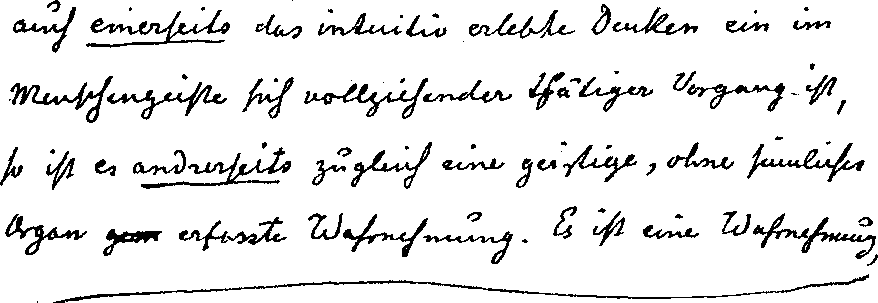 auch einerseits das intuitiv erlebte Denken ein im
Menschengeiste sich vollziehender thätiger Vorgang ist,
so ist es andrerseits zugleich eine geistige, ohne sinnliches
Organ erfasste Wahrnehmung. Es ist eine Wahrnehmung,